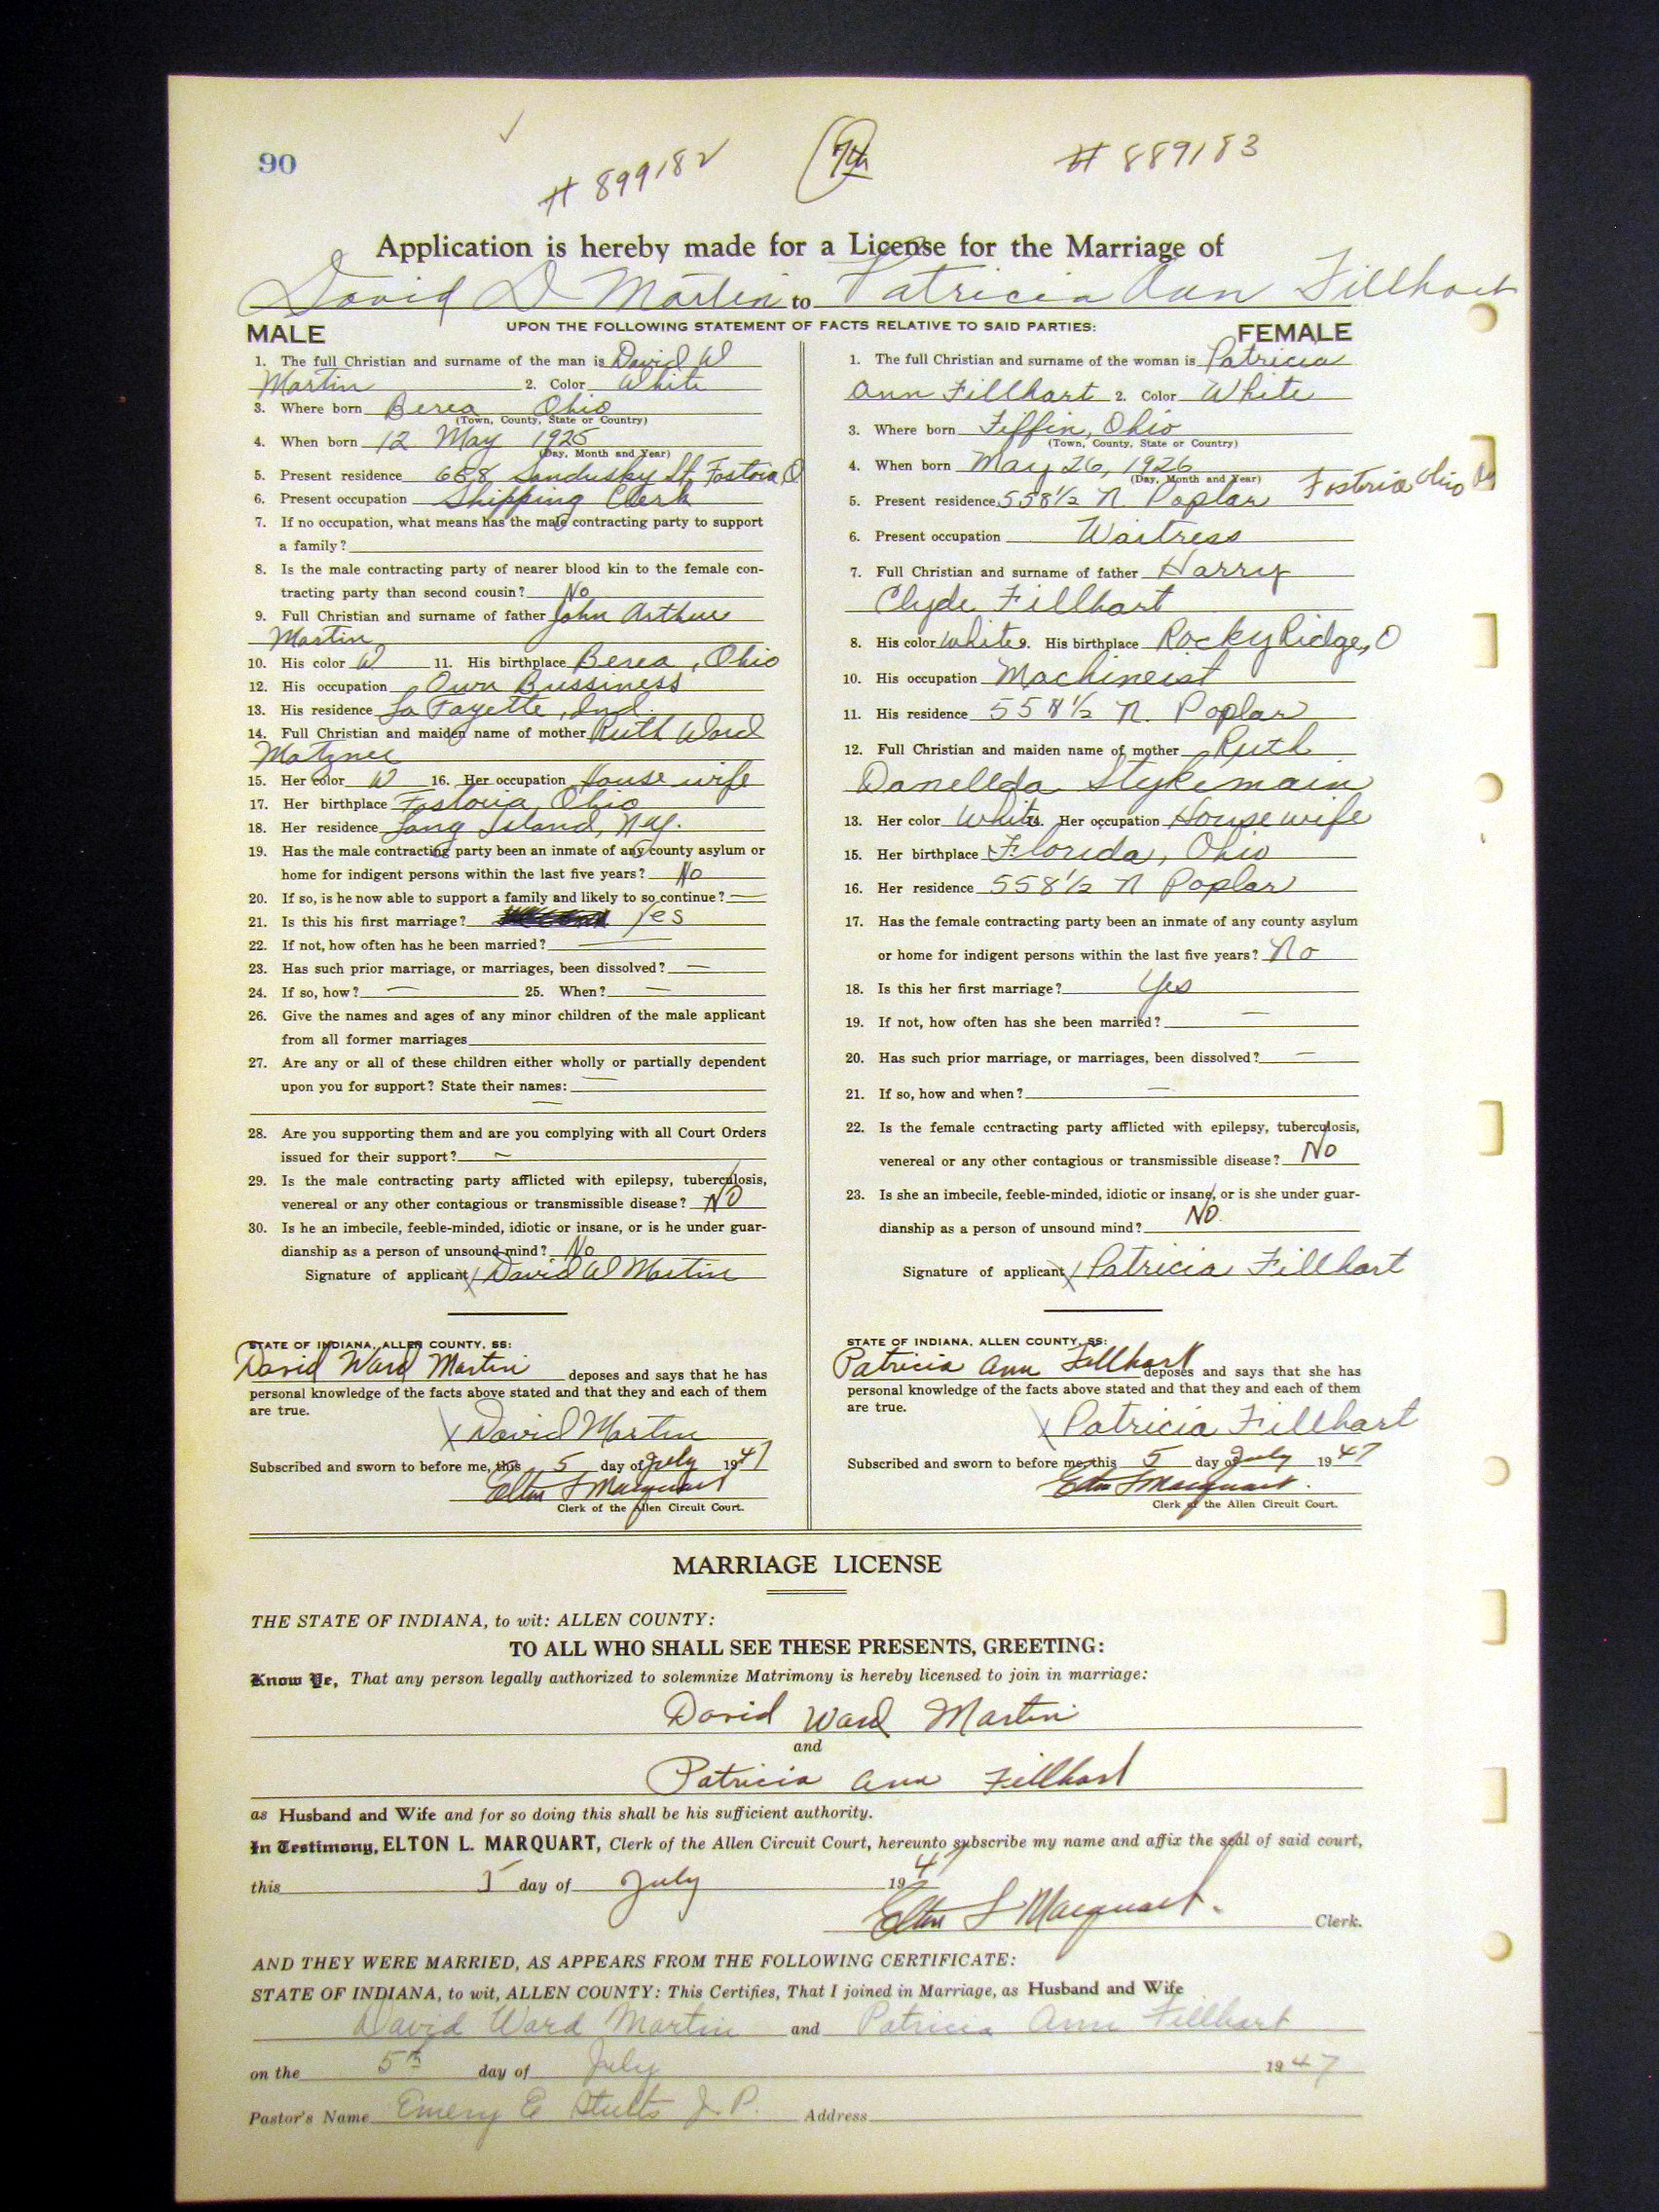 90
# 899182
7th
# 889183
Application is hereby made for a License for the Marriage of
David D Martin to Patricia Ann Fillhart
UPON THE FOLLOWING STATEMENT OF FACTS RELATIVE TO SAID PARTIES:
MALE
1. The full Christian and surname of the man is David W
Martin 2. Color White
3. Where born Berea Ohio
(Town, County, State or Country)
4. When born 12 May 1925
(Day, Month and Year)
5. Present residence 658 Sandusky St Fostoria, O
6. Present occupation Shipping Clerk
7. If no occupation, what means has the male contracting party to support
a family?
8. Is the male contracting party of nearer blood kin to the female con-
tracting party than second cousin? No
9. Full Christian and surname of father John Arthur
Martin
10. His color W 11. His birthplace Berea, Ohio
12. His occupation Own Bussiness
13. His residence La Fayette, Ind.
14. Full Christian and maiden name of mother Ruth Ward
15. Her color W 16. Her occupation House wife
17. Her birthplace Fostoria, Ohio
18. Her residence Long Island, N.Y.
19. Has the male contracting party been an inmate of any county asylum or
home for indigent persons within the last five years? No
20. If so, is he now able to support a family and likely to so continue? —
21. Is this his first marriage? Yes
22. If not, how often has he been married? —
23. Has such prior marriage, or marriages, been dissolved? —
24. If so, how? — 25. When? —
26. Give the names and ages of any minor children of the male applicant
from all former marriages
27. Are any or all of these children either wholly or partially dependent
upon you for support? State their names: —
—
28. Are you supporting them and are you complying with all Court Orders
issued for their support? ~
29. Is the male contracting party afflicted with epilepsy, tuberculosis,
venereal or any other contagious or transmissible disease? NO
30. Is he an imbecile, feeble-minded, idiotic or insane, or is he under guar-
dianship as a person of unsound mind? No
Signature of applicant X David W Martin
STATE OF INDIANA, ALLEN COUNTY, SS:
David Ward Martin deposes and says that he has
personal knowledge of the facts above stated and that they and each of them
are true.
X David Martin
Subscribed and sworn to before me, this 5 day of July 1947
Elton L Marquart
Clerk of the Allen Circuit Court.
FEMALE
1. The full Christian and surname of the woman is Patricia
Ann Fillhart 2. Color White
3. Where born Tiffin, Ohio
(Town, County, State or Country)
4. When born May 26, 1926
(Day, Month and Year)
5. Present residence 558½ N. Poplar Fostoria Ohio
6. Present occupation Waitress
7. Full Christian and surname of father Harry
Clyde Fillhart
8. His color White 9. His birthplace Rocky Ridge, O
10. His occupation Machineist
11. His residence 558½ N. Poplar
12. Full Christian and maiden name of mother Ruth
Danellda Stykemain
13. Her color White 14. Her occupation House wife
15. Her birthplace Florida, Ohio
16. Her residence 558½ N Poplar
17. Has the female contracting party been an inmate of any county asylum
or home for indigent persons within the last five years? No
18. Is this her first marriage? Yes
19. If not, how often has she been married? —
20. Has such prior marriage, or marriages, been dissolved? —
21. If so, how and when? —
22. Is the female contracting party afflicted with epilepsy, tuberculosis,
venereal or any other contagious or transmissible disease? NO
23. Is she an imbecile, feeble-minded, idiotic or insane, or is she under guar-
dianship as a person of unsound mind? NO.
Signature of applicant X Patricia Fillhart
STATE OF INDIANA, ALLEN COUNTY, SS:
Patricia Ann Fillhart deposes and says that she has
personal knowledge of the facts above stated and that they and each of them
are true.
X Patricia Fillhart
Subscribed and sworn to before me, this 5 day of July 1947
Elton L Marquart.
Clerk of the Allen Circuit Court.
MARRIAGE LICENSE
THE STATE OF INDIANA, to wit: ALLEN COUNTY:
TO ALL WHO SHALL SEE THESE PRESENTS, GREETING:
Know Ye, That any person legally authorized to solemnize Matrimony is hereby licensed to join in marriage:
David Ward Martin
and
Patricia Ann Fillhart
as Husband and Wife and for so doing this shall be his sufficient authority.
In Testimony, ELTON L. MARQUART, Clerk of the Allen Circuit Court, hereunto subscribe my name and affix the seal of said court,
this 5 day of July 1947
Elton L Marquart. Clerk.
AND THEY WERE MARRIED, AS APPEARS FROM THE FOLLOWING CERTIFICATE:
STATE OF INDIANA, to wit, ALLEN COUNTY: This Certifies, That I joined in Marriage, as Husband and Wife
David Ward Martin and Patricia Ann Fillhart
on the 5th day of July 1947
Pastor's Name Emery E Stults J. P. Address